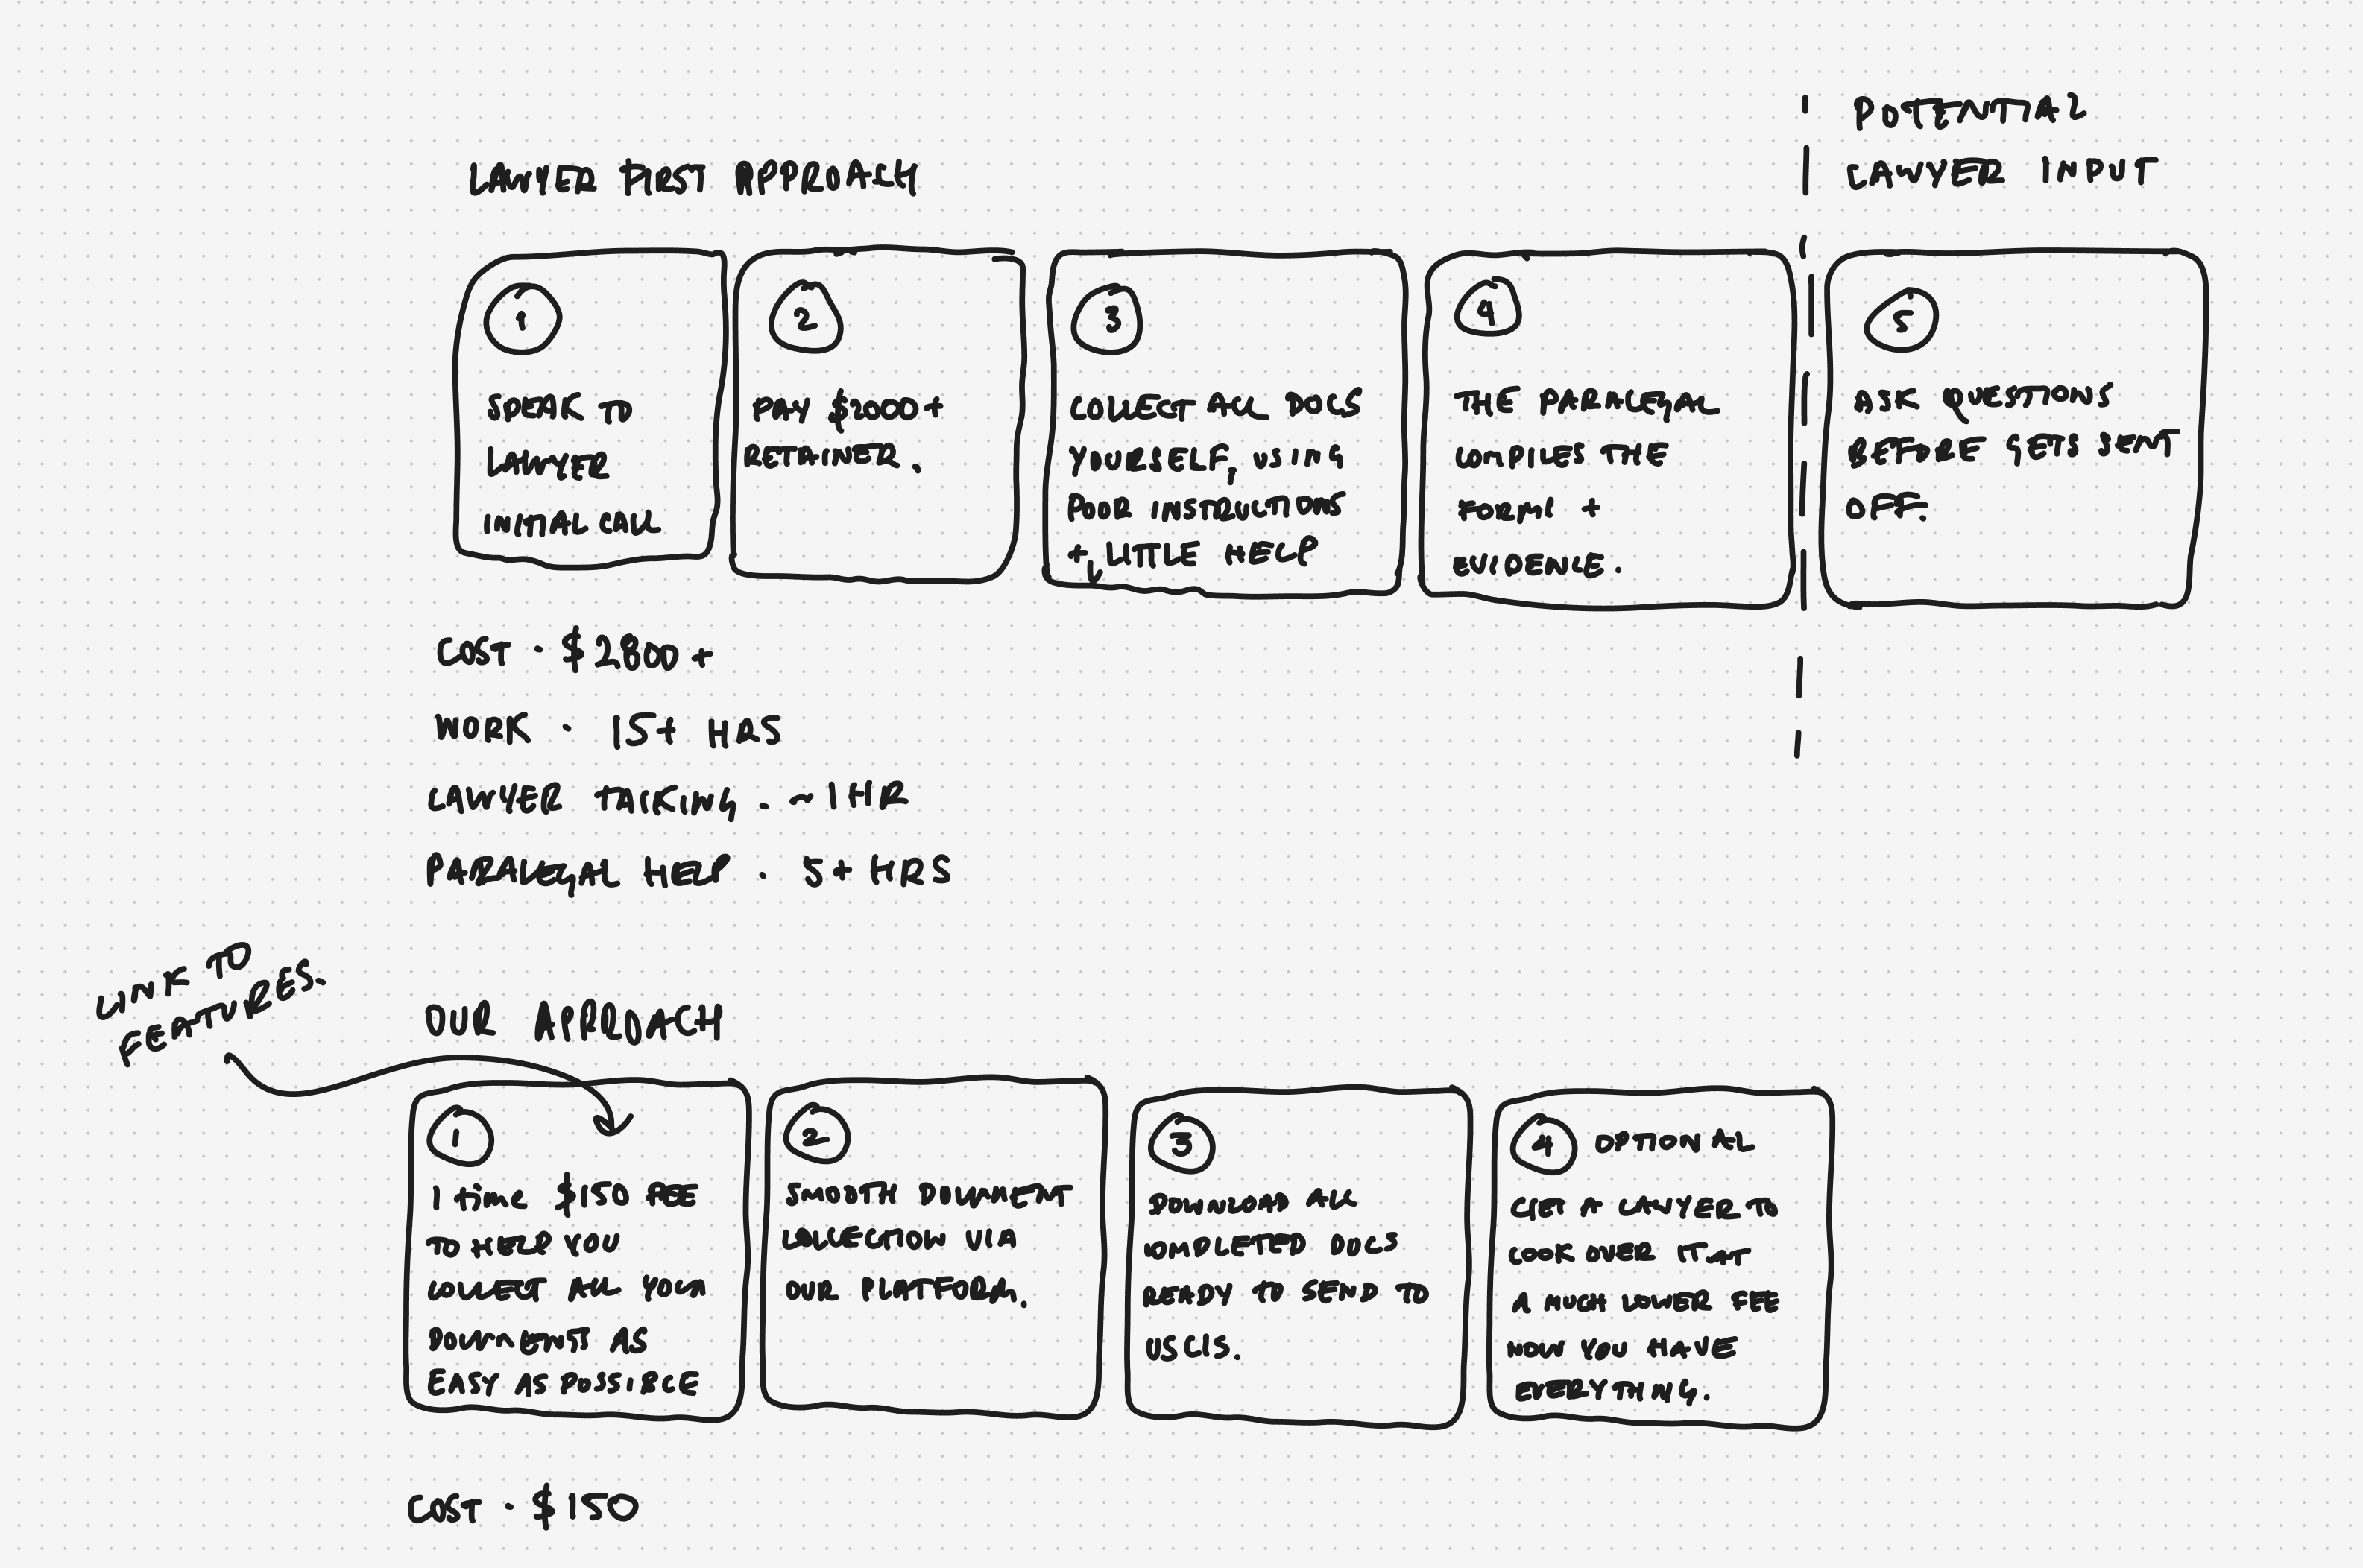 POTENTIAL
LAWYER INPUT
LAWYER FIRST APPROACH
1
SPEAK TO
LAWYER
INITIAL CALL
2
PAY $2000+
RETAINER.
3
COLLECT ALL DOCS
YOURSELF, USING
POOR INSTRUCTIONS
+ LITTLE HELP
4
THE PARALEGAL
COMPILES THE
FORMS +
EVIDENCE.
5
ASK QUESTIONS
BEFORE GETS SENT
OFF.
COST · $2800+
WORK · 15+ HRS
LAWYER TALKING · ~1HR
PARALEGAL HELP · 5+ HRS
LINK TO
FEATURES.
OUR APPROACH
1
1 time $150 FEE
TO HELP YOU
COLLECT ALL YOUR
DOCUMENTS AS
EASY AS POSSIBLE
2
SMOOTH DOCUMENT
COLLECTION VIA
OUR PLATFORM.
3
DOWNLOAD ALL
COMPLETED DOCS
READY TO SEND TO
USCIS.
4 OPTIONAL
GET A LAWYER TO
LOOK OVER IT AT
A MUCH LOWER FEE
NOW YOU HAVE
EVERYTHING.
COST · $150